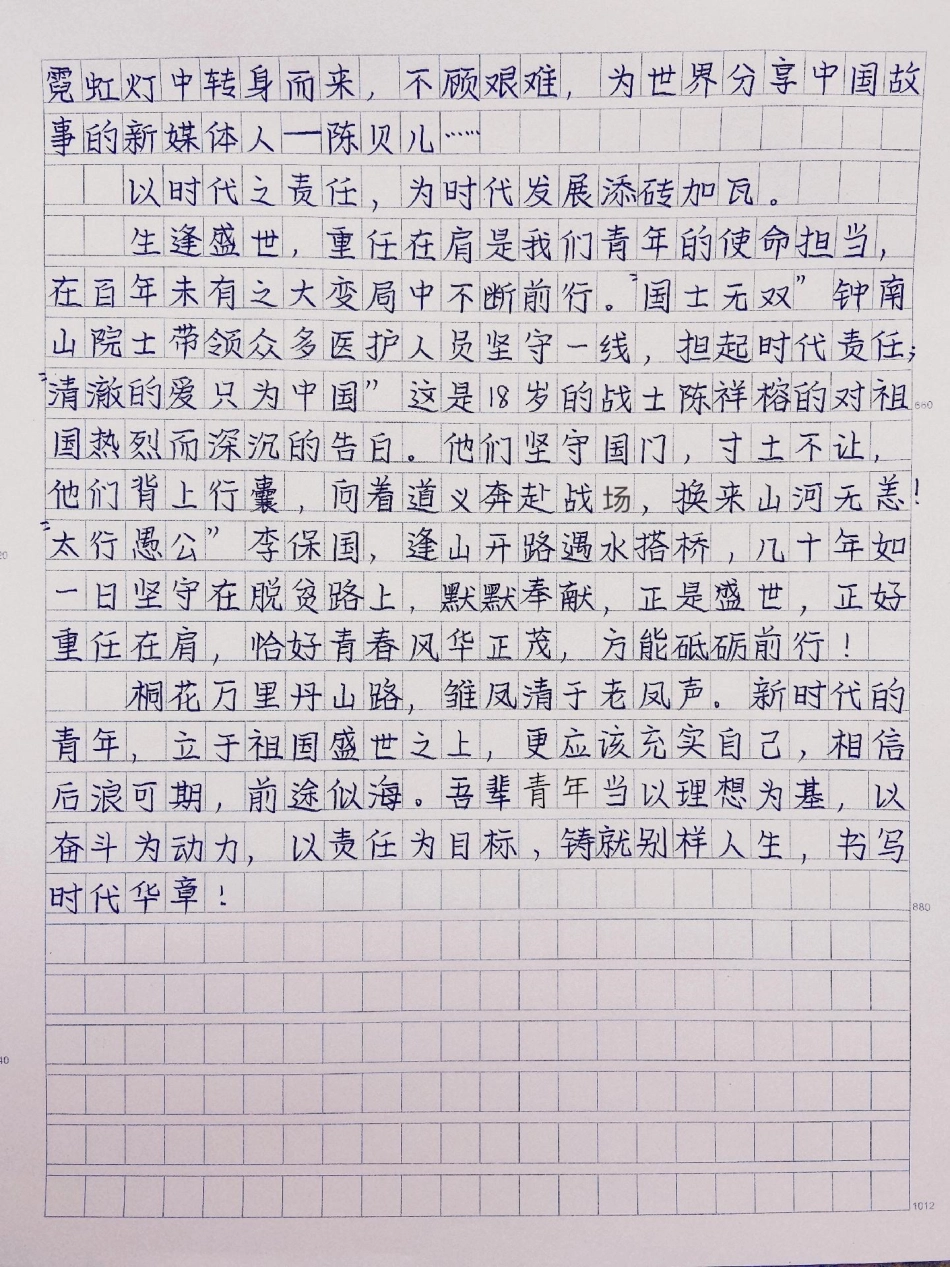 霓虹灯中转身而来，不顾艰难，为世界分享中国故
事的新媒体人——陈贝儿……
以时代之责任，为时代发展添砖加瓦。
生逢盛世，重任在肩是我们青年的使命担当，
在百年未有之大变局中不断前行。“国士无双”钟南
山院士带领众多医护人员坚守一线，担起时代责任；
“清澈的爱只为中国”这是18岁的战士陈祥榕的对祖
660
国热烈而深沉的告白。他们坚守国门，寸土不让，
他们背上行囊，向着道义奔赴战场，换来山河无恙！
“太行愚公”李保国，逢山开路遇水搭桥，几十年如
20
一日坚守在脱贫路上，默默奉献，正是盛世，正好
重任在肩，恰好青春风华正茂，方能砥砺前行！
桐花万里丹山路，雏凤清于老凤声。新时代的
青年，立于祖国盛世之上，更应该充实自己，相信
后浪可期，前途似海。吾辈青年当以理想为基，以
奋斗为动力，以责任为目标，铸就别样人生，书写
时代华章！
880
40
1012